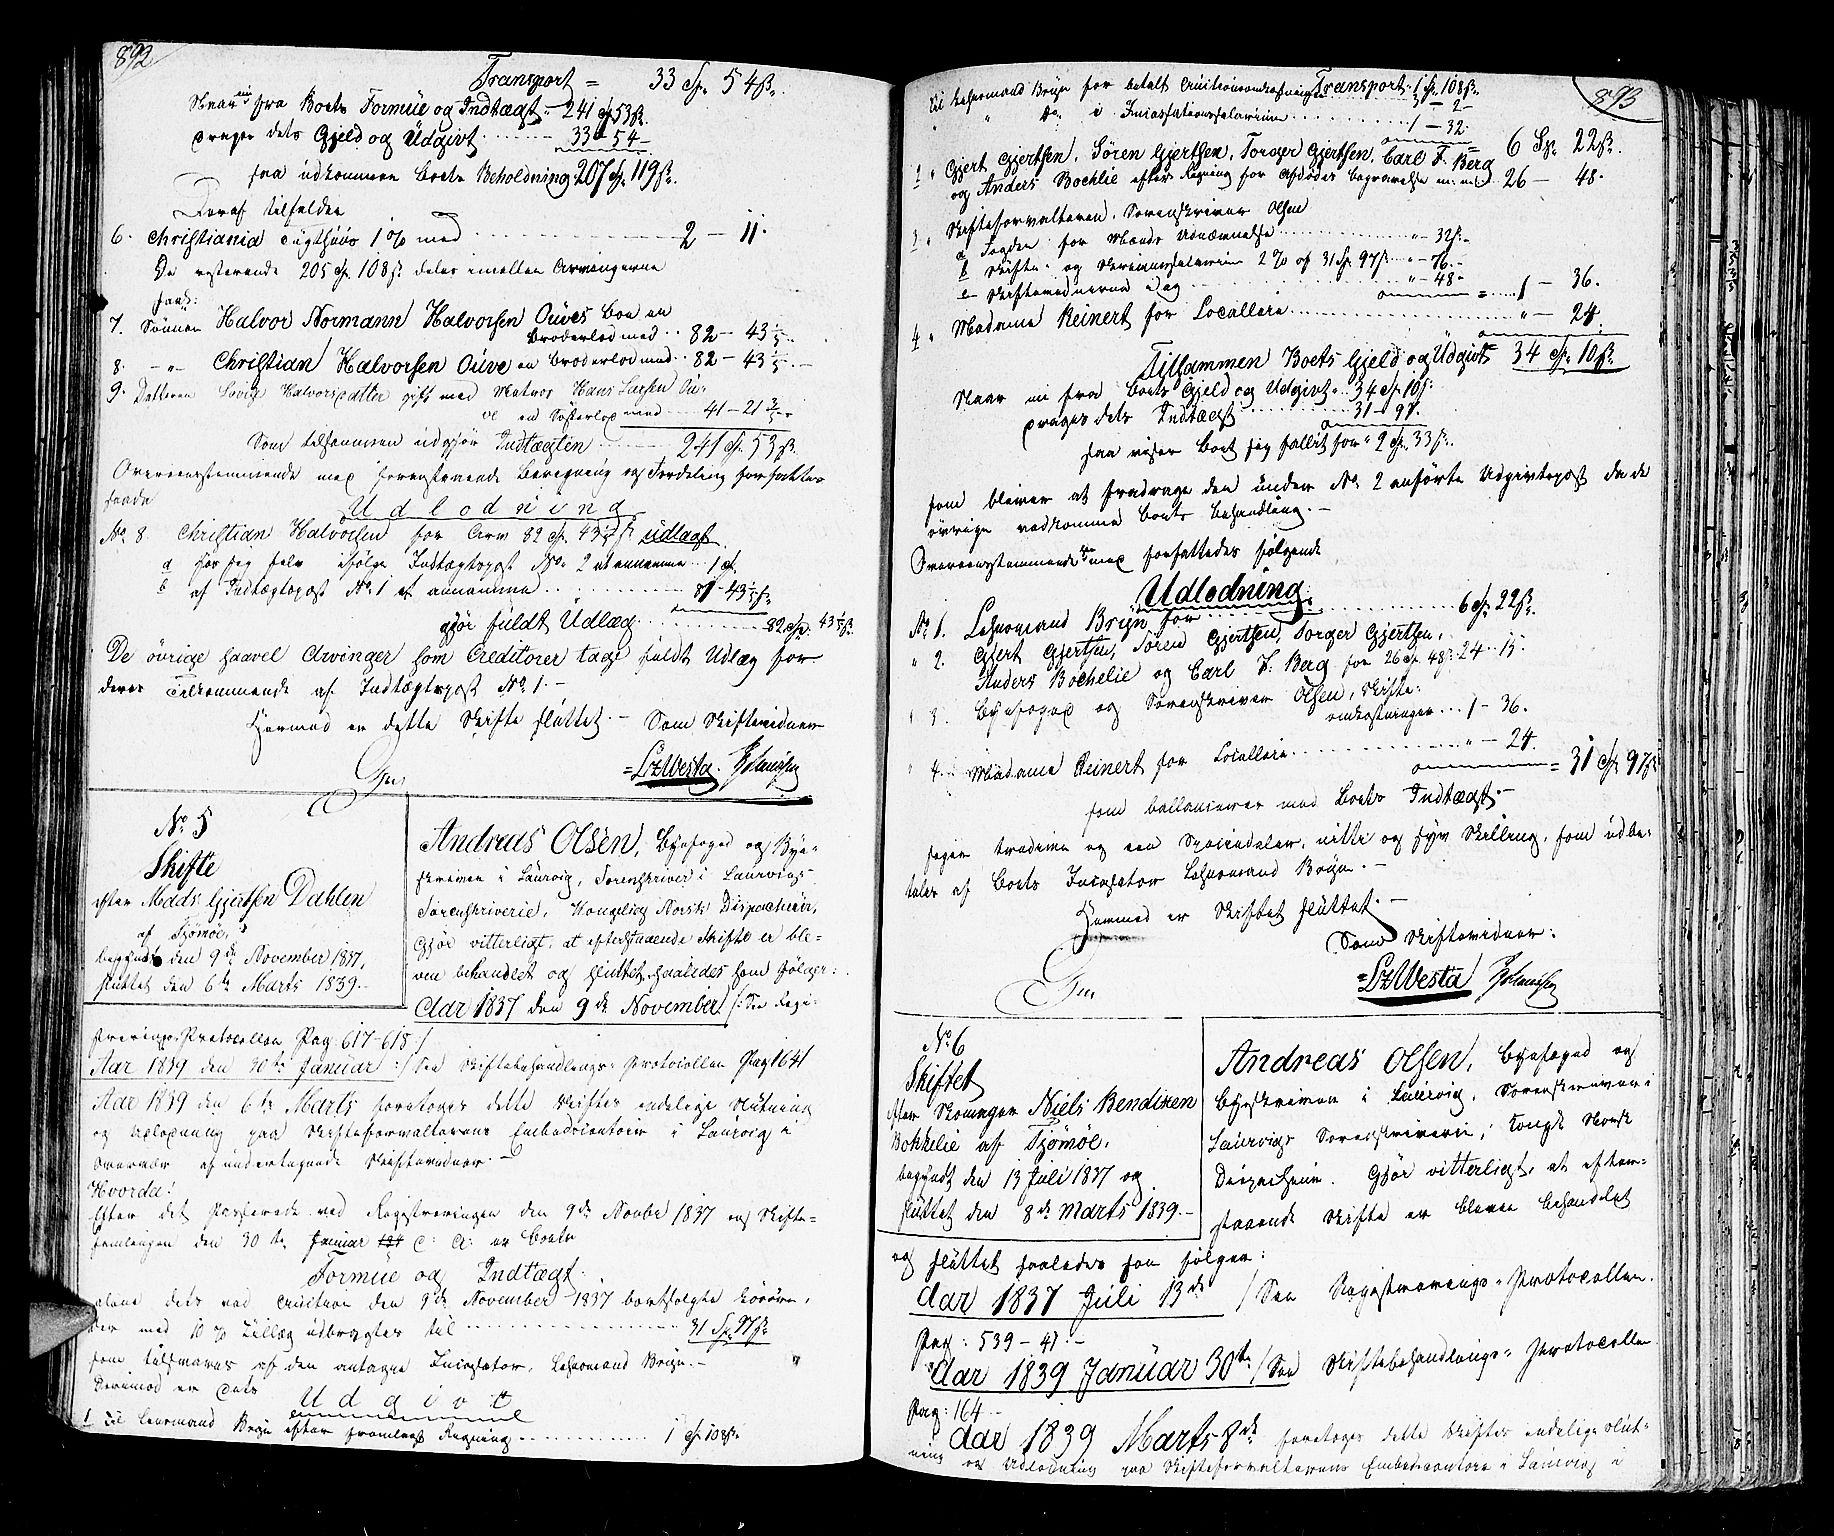 892
Transport = 33 Sp. 54 ß.
Naar nu fra Boets Formüe og Indtægt 241 Sp 53 ß.
drages dets Gjeld og Udgivt 33 – 54
saa udkommer Boets Beholdning 207 Sp. 119 ß.
Deraf tilfalder
6. Christiania Tugthuus 1 % med 2 – 11.
De resterende 205 Sp. 108 ß. deles imellem Arvingerne
saal:
7. Sönnen Halvor Normann Halvorsen Ouves Boe en
Broderlod med 82 – 43 1/5
8. – " – Christian Halvorsen Ouve en Broderlod med 82 – 43 1/5
9. Datteren Lovise Halvorsdatter gift med Matros Hans Larsen Ou-
ve en Søsterlod med 41 – 21 3/5
Som tilsammen udgjör Indtægten 241 Sp. 53 ß.
Overeensstemmende med forestaaende Beregning og Fordeling forfattes
saadan
Udlodning
No. 8 Christian Halvorsen for Arv 82 Sp. 43 1/5 ß. udlagt
a for sig selv ifölge Indtægtspost No. 2 at annamme 1 Sp.
b af Indtægtspost No. 1 at annamme 81 – 43 1/5 ß.
gjør fuldt Udlæg 82 Sp. 43 1/5 ß.
De övrige saavel Arvinger som Creditorer tage fuldt Udlæg for
deres Tilkommende af Indtægtspost No. 1. –
Hermed er dette Skifte sluttet. – Som Skiftevidner
LzWesta.
No. 5
Skifte
efter Mads Gjertsen Dahlen
af Tjömöe,
begyndt den 9de November 1837,
sluttet den 6te Marts 1839.
Andreas Olsen, Byefoged og Bye-
skriver i Laurvig, Sorenskriver i Laurvigs
Sorenskriverie, Kongelig Norsk Dispacheur,
Gjør vitterligt, at efterstaaende Skifte er ble-
ven behandlet og sluttet saaledes som fölger:
Aar 1837 den 9de November /: See Regi-
streringsProtocollen Pag. 617-618 /
Aar 1839 den 30te Januar :/ See Skiftebehandlings-Protocollen Pag 164
Aar 1839 den 6te Marts foretoges dette Skiftes endelige Slutning
og Udlodning paa Skifteforvalterens Embedscontoir i Laurvig i
Overvær af undertegnede Skiftevidner. –
Hvorda:
Efter det Passerede ved Registreringen den 9de Novbr 1837 og Skifte-
samlingen den 30te Januar d: A: er Boets
Formüe og Indtægt
alene dets ved Auction den 9de November 1837 bortsolgte Lösöre,
der med 10 % Tillæg udbragtes til 31 Sp. 97 ß.
som tilsvares af den antagne Incassator, Lehnsmand Bryn. –
Derimod er dets
Udgivt
1 Til Lensmand Bryn efter fremlagt Regning 1 Sp 108 ß.
893
Transport 1 Sp. 108 ß.
Til Lehnsmand Bryn for betalt Auctionsomkostninger 1 – 2 –
" " Do i Incassationssalarium 1 – 32.
6 Sp. 22 ß.
2 " Gjert Gjertsen, Sören Gjertsen, Torger Gjertsen, Carl F. Berg
og Anders Bochlie efter Regning for Afdödes Begravelse m: m: 26 – 48.
3 " Skifteforvalteren, Sorenskriver Olsen
a Fogden for Mænds Udnævnelse " – 32 ß. –
b Skifte- og Skriversalarium 2 % af 31 Sp. 97 ß. " – 76. –
c Skiftevidnerne 1 Dag " – 48 –
1 – 36.
4 " Madame Reinert for Locallere " – 24.
Tilsammen Boets Gjeld og Udgivt 34 Sp. 10 ß.
Naar nu fra Boets Gjeld og Udgivt 34 Sp 10 ß.
drages dets Indtægt 31 – 97.
saa viser Boet sig fallit for 2 Sp. 33 ß.
som bliver at fradrage den under No. 2 anförte Udgivtspost da de
övrige vedkomme Boets Behandling. –
Overeensstemmende med forfattedes fölgende
Udlodning.
No. 1. Lehnsmand Bryn for 6 Sp. 22 ß.
" 2. Gjert Gjertsen, Sören Gjertsen, Torger Gjertsen,
Anders Bochelie og Carl F. Berg for 26 Sp 48 ß. 24 – 15.
" 3. Byefoged og Sorenskriver Olsen, Skifte-
omkostninger 1 – 36.
" 4. Madame Reinert for Locallere " – 24.
= 31 Sp. 97 ß.
som ballancerer med Boets Indtægt. –
siger tredive og een Speciedaler, nitti og syv Skilling, som udbe-
tales af Boets Incassator Lehnsmand Bryn. –
Hermed er Skiftet sluttet. –
Som Skiftevidner:
LzWesta
No. 6
Skiftet
efter Niels Bendixen
Bokkelie af Tjömöe,
begyndt den 13 Juli 1837 og
sluttet den 8de Marts 1839. –
Andreas Olsen, Byefoged og
Byeskriver i Laurvig, Sorenskriver i
Laurvigs Sorenskriverie, Kongl. Norsk
Dispacheur. Gjör vitterligt, at efter-
staaende Skifte er bleven behandlet
og sluttet saaledes som fölger:
Aar 1837 Juli 13de / See Registrerings-Protocollen.
Pag: 539 – 41. –
Aar 1839 Januar 30te / See Skiftebehandlings-Protocollen
Pag: 164
Aar 1839 Marts 8de foretoges dette Skiftes endelige Slut-
ning og Udlodning paa Skifteforvalterens Embedscontoir i Laurvig i